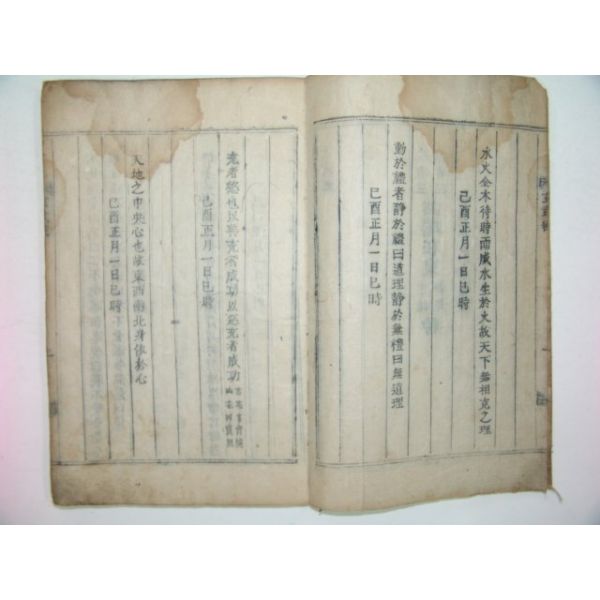 水火金木待時而成水生於火故天下無相克之理
己酉正月一日巳時
動於禮者靜於禮曰道理靜於無禮曰無道理
己酉正月一日巳時
充者慾也以惡充者成功以善充者成功
己酉正月一日巳時
天地之中央心也故東西南北身依於心
己酉正月一日巳時